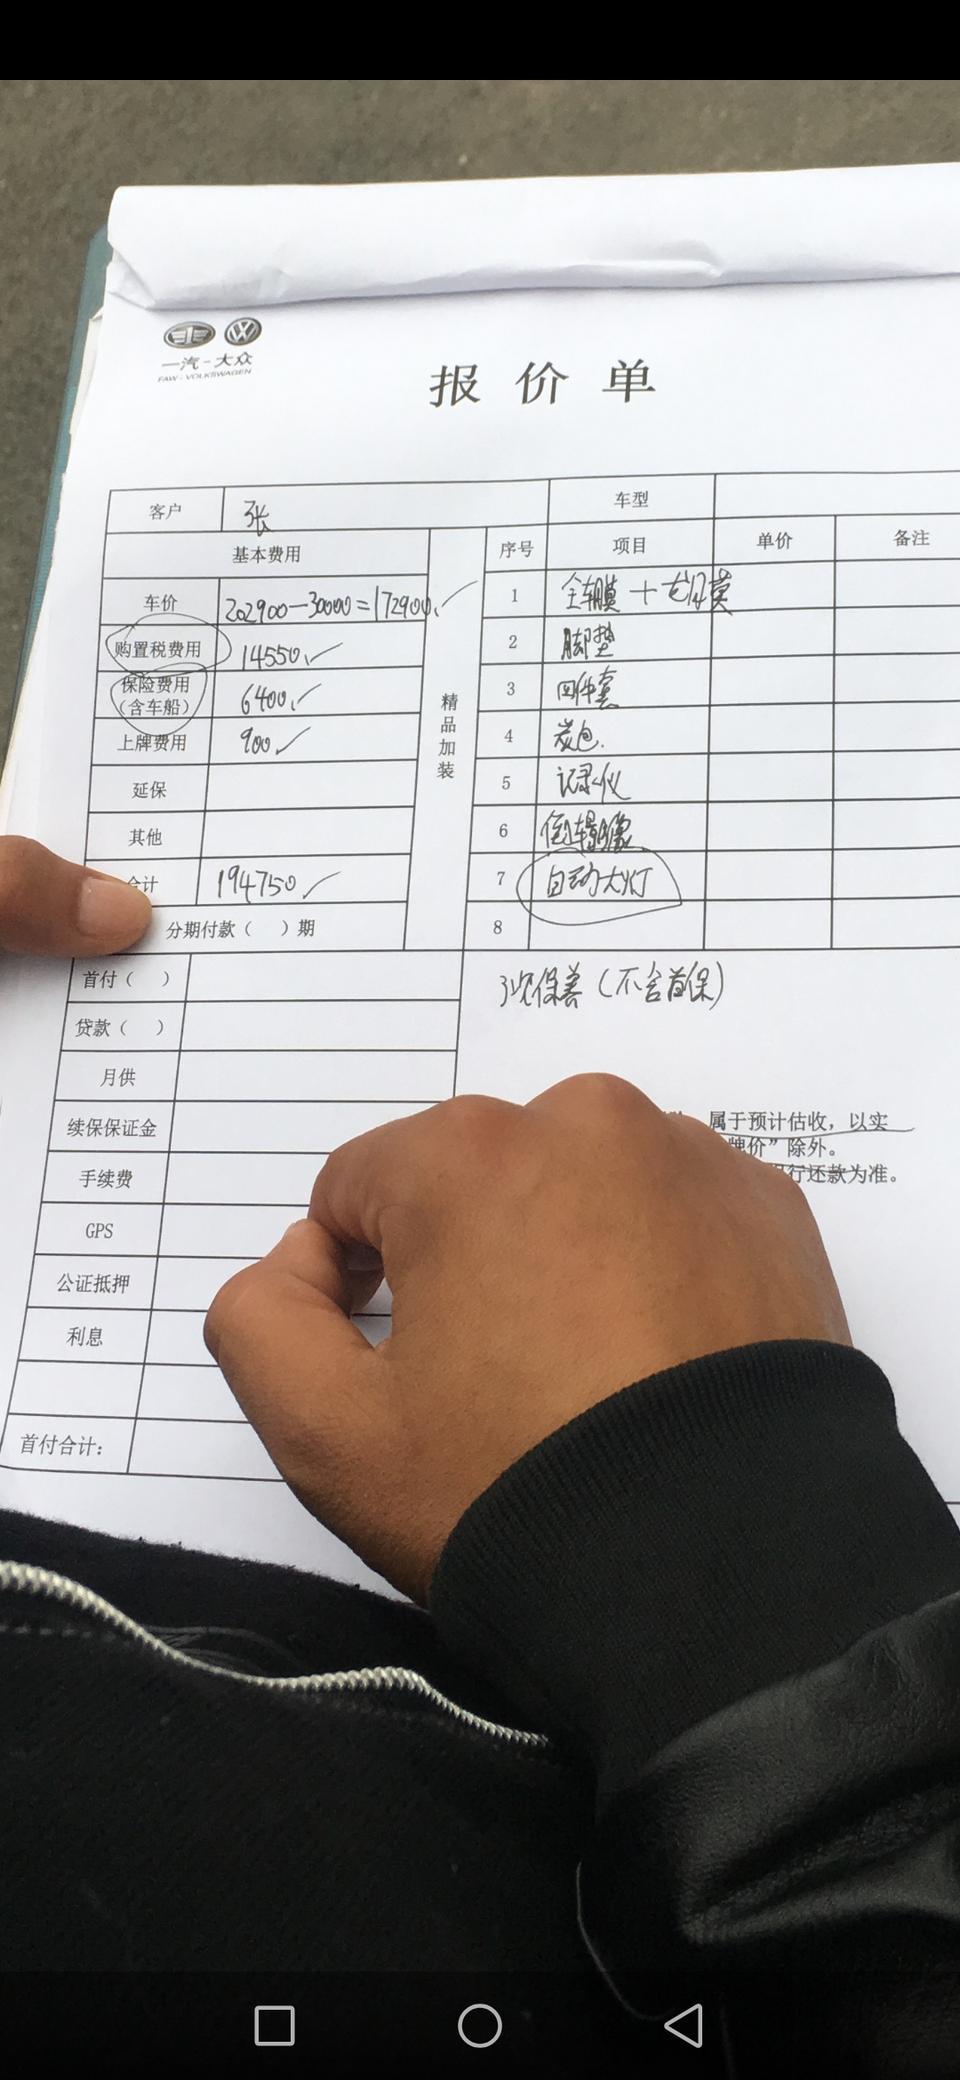 一汽-大众
FAW-VOLKSWAGEN
报价单
客户 张 车型
基本费用
车价 202900-30000=172900
购置税费用 14550
保险费用
(含车船) 6400
上牌费用 900
延保
其他
合计 194750
分期付款( )期
精品加装
序号 项目 单价 备注
1 全车膜+龙月膜
2 脚垫
3 四件套
4 炭包
5 记录仪
6 倒车影像
7 自动大灯
8
首付( )
贷款( )
月供
续保保证金
手续费
GPS
公证抵押
利息
首付合计:
3次保养(不含首保)
属于预计估收,以实
牌价”除外。
行还款为准。